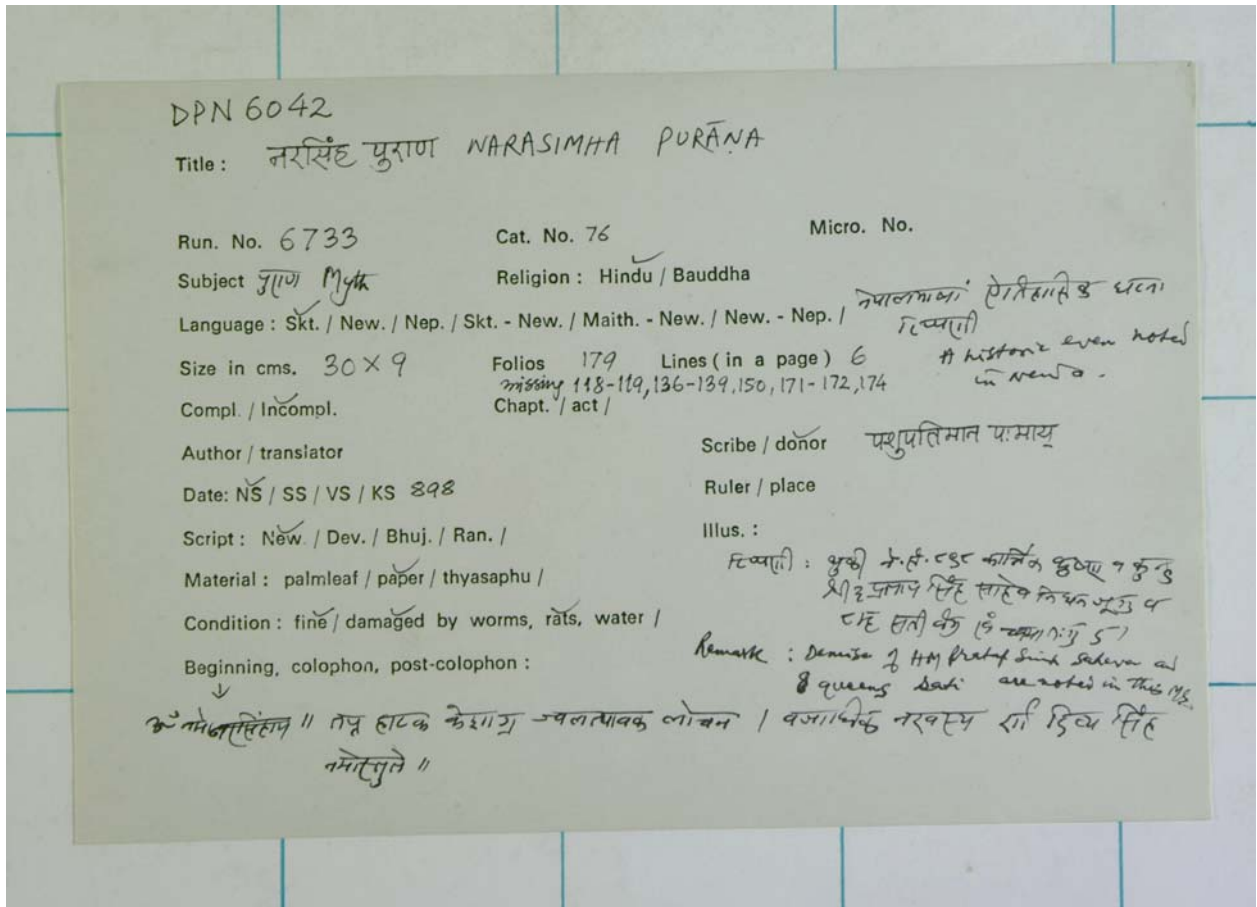 DPN 6042
Title : नरसिंह पुराण NARASIMHA PURĀṆA
Run. No. 6733 Cat. No. 76 Micro. No.
Subject पुराण Myth Religion : Hindu / Bauddha
Language : Skt. / New. / Nep. / Skt. - New. / Maith. - New. / New. - Nep. / नेपालभाषां ऐतिहासिक घटना
टिप्पणी
A historic even noted
in
Size in cms. 30 × 9 Folios 179 Lines ( in a page ) 6
missing 118-119, 136-139, 150, 171-172, 174
Compl. / Incompl. Chapt. / act /
Author / translator Scribe / donor पशुपतिमान
Date: NS / SS / VS / KS 898 Ruler / place
Script : New. / Dev. / Bhuj. / Ran. / Illus. :
Material : palmleaf / paper / thyasaphu / टिप्पणी : ने.सं. ८९८ कार्तिक
श्री ३ प्रताप सिंह साहेब
Condition : fine / damaged by worms, rats, water /
सती
Beginning, colophon, post-colophon : Remark : Demise of HM Pratap Sinh Saheva and
8 queens Sati are noted in this MS.
ॐ नमो नरसिंहाय ॥ तप्त हाटक केशाग्र ज्वलत्पावक लोचन / दिव्य सिंह
नमोस्तुते ॥